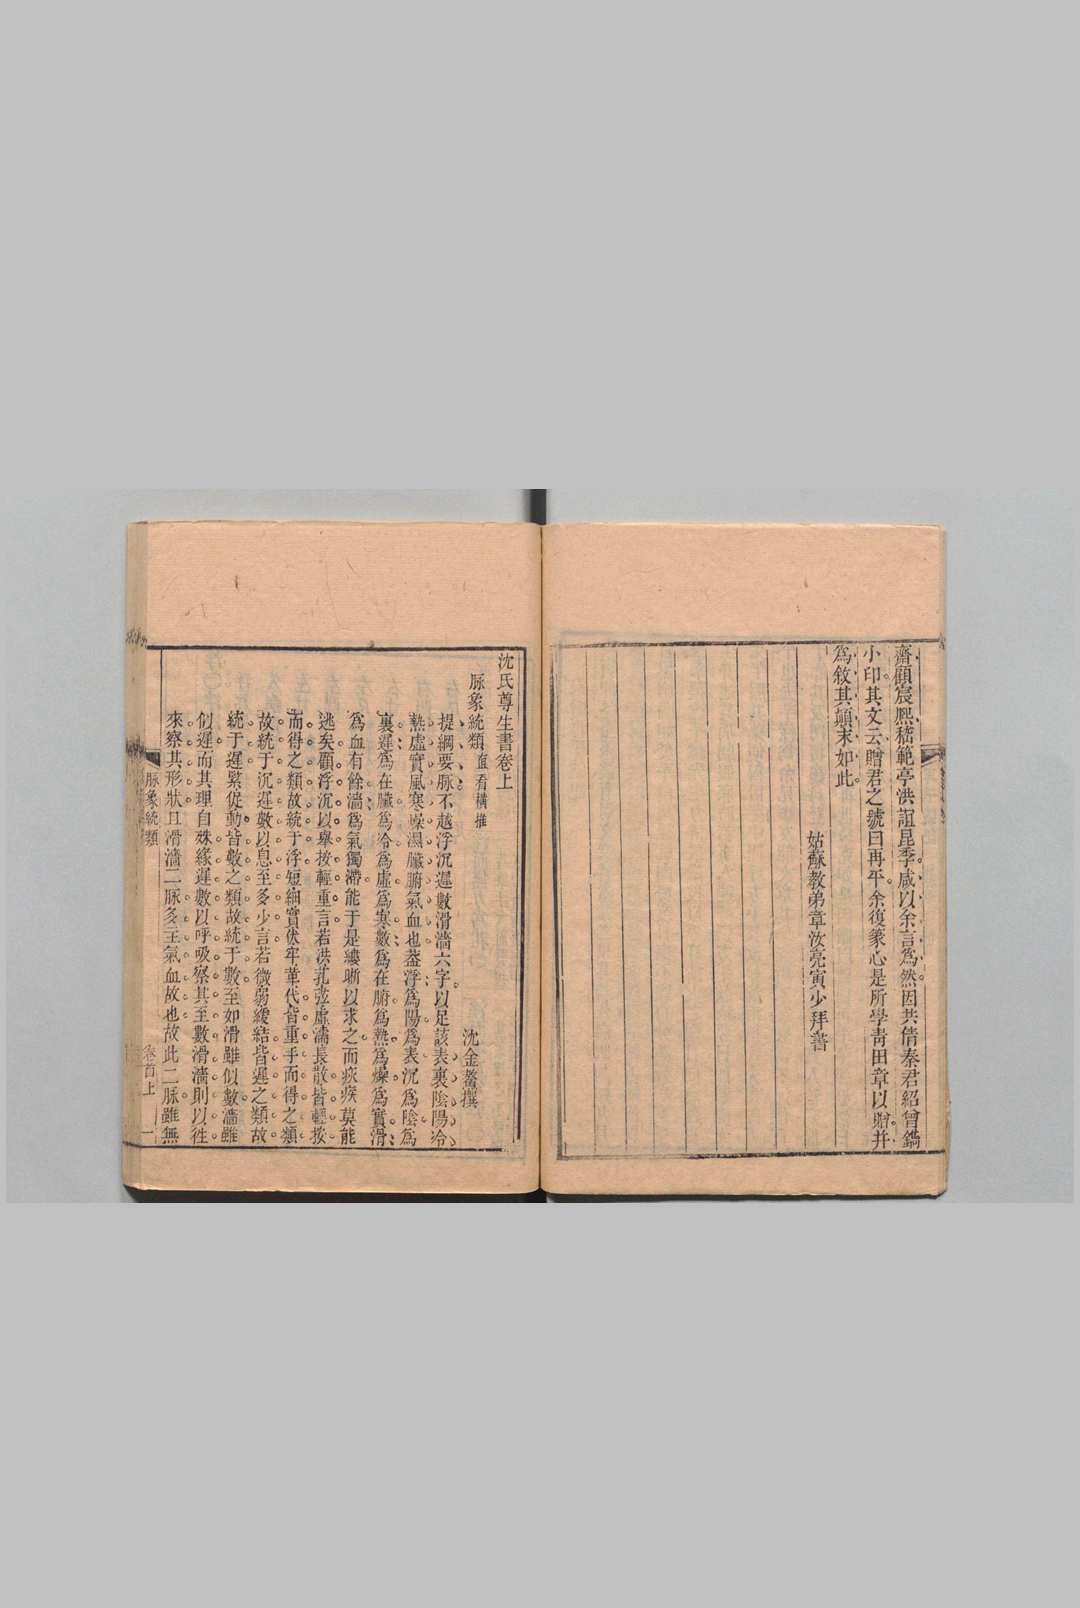 齋顧宸熙嵇範亭洪詛昆季咸以余言爲然因共倩秦君紹曾鐫
小印其文云贈君之號曰再平余復篆心是所學靑田章以贈并
爲敘其顛末如此
姑蘇教弟章汝亮寅少拜譔
沈氏尊生書卷上
脉象統類 直看橫推
沈金鰲撰
提綱要脉不越浮沉遲數滑濇六字以足該表裏陰陽冷
熱虛實風寒燥濕臟腑氣血也蓋浮爲陽爲表沉爲陰爲
裏遲爲在臟爲冷爲虛爲寒數爲在腑爲熱爲燥爲實滑
爲血有餘濇爲氣獨滯能于是縷晰以求之而疢疾莫能
逃矣顧浮沉以舉按輕重言若洪芤弦虛濡長散皆輕按
而得之類故統于浮短細實伏牢革代皆重手而得之類
故統于沉遲數以息至多少言若微弱緩結皆遲之類故
統于遲緊促動皆數之類故統于數至如滑雖似數濇雖
似遲而其理自殊緣遲數以呼吸察其至數滑濇則以徃
來察其形狀且滑濇二脉多主氣血故也故此二脉雖無
脉象統類
卷首上
一